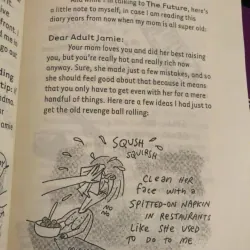 And while I'm talking to The Future, here's
a little note to myself, in case I am reading this
diary years from now when my mom is all super old:
Dear Adult Jamie:
Your mom loves you and did her best raising
you, but you're really hot and really rich now
anyway. Sure, she made just a few mistakes, and so
she should feel good about that because it means
that you only have to get even with her for a mere
handful of things. Here are a few ideas I had just to
get the old revenge ball rolling:
SQUSH
SQUISH
NO
NO
CLEAN HER
FACE WITH A
SPITTED-ON NAPKIN
IN RESTAURANTS
LIKE SHE USED
TO DO TO ME